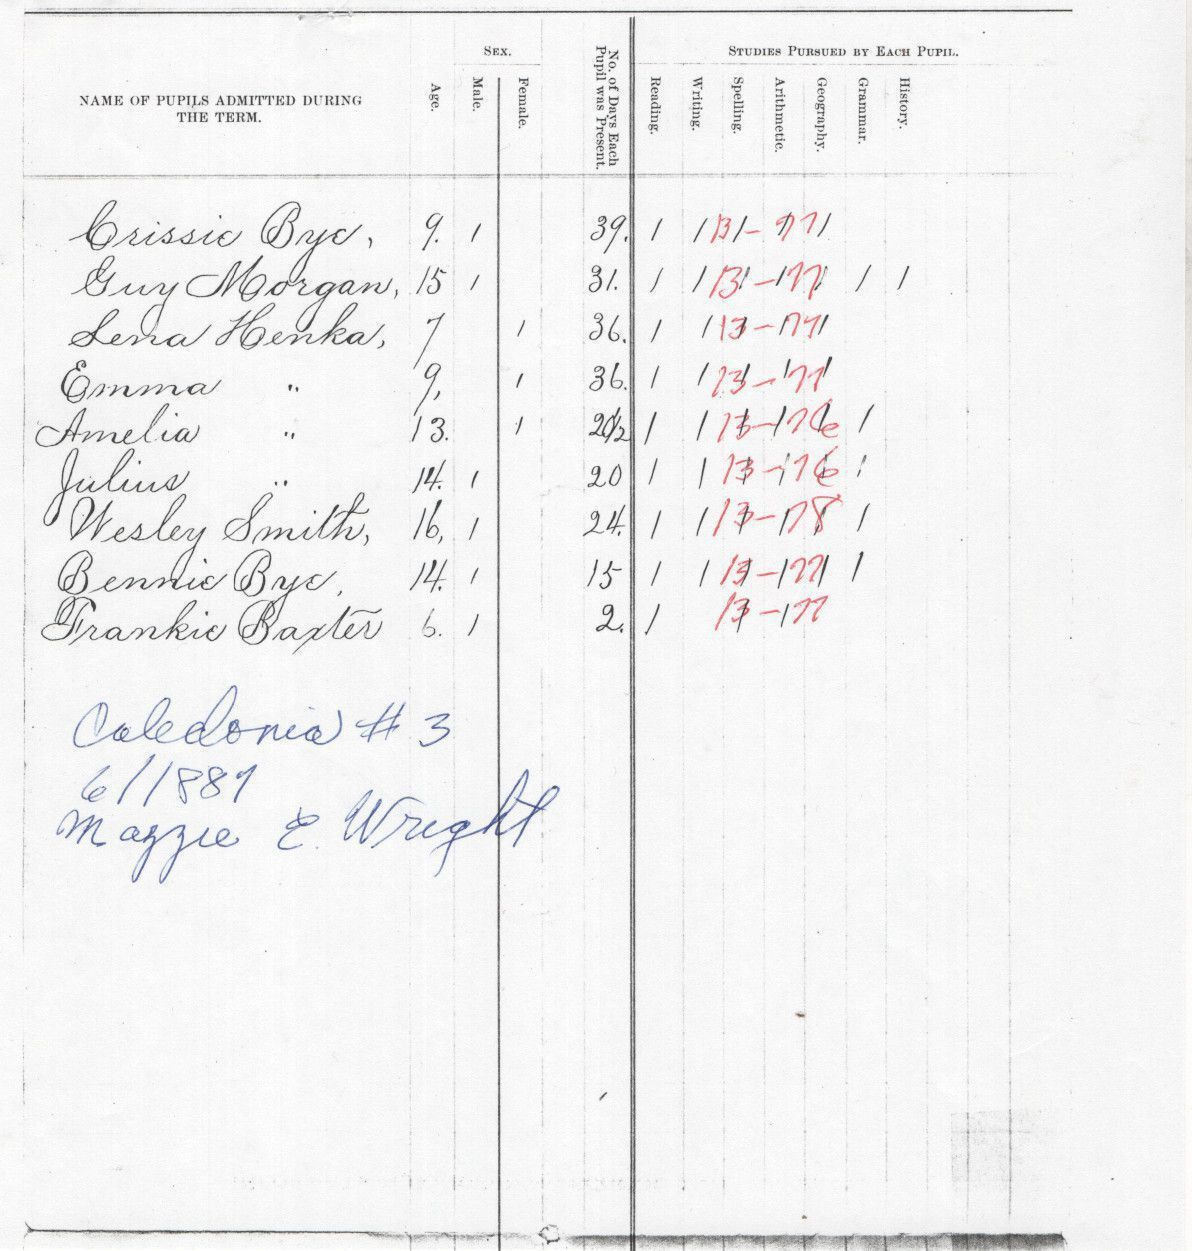 NAME OF PUPILS ADMITTED DURING THE TERM. Age. SEX. Male. Female. No. of Days Each Pupil was Present. STUDIES PURSUED BY EACH PUPIL. Reading. Writing. Spelling. Arithmetic. Geography. Grammar. History.
Crissie Bye, 9. / 39. / / 13/- 77/
Guy Morgan, 15 / 31. / / 13-177 / / /
Lena Henka, 7 / 36. / / 13-177/
Emma " 9, / 36. / / 13-177
Amelia " 13. / 20½ / / 13-176 / /
Julius " 14. / 20 / / 13-176 /
Wesley Smith, 16, / 24. / / 13-178 /
Bennie Bye, 14. / 15 / / 13-177 / /
Frankie Baxter 6. / 2. / 13-177
Caledonia # 3
6/1887
Mazzie E. Wright